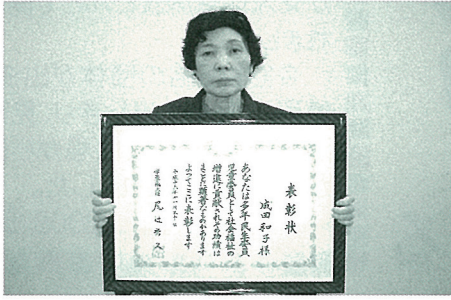 表彰状
成田和子様
あなたは多年民生委員
児童委員として社会福祉の
増進に貢献されその功績は
まことに顕著なものがあります
よってここに表彰します
厚生労働大臣 尾辻秀久